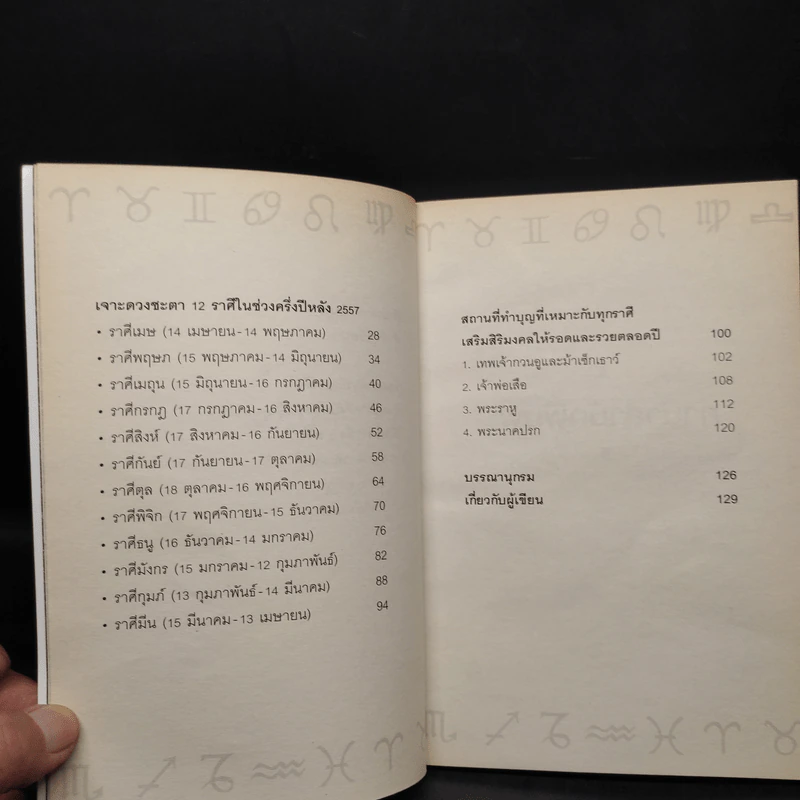 เจาะดวงชะตา 12 ราศีในช่วงครึ่งปีหลัง 2557
• ราศีเมษ (14 เมษายน-14 พฤษภาคม) 28
• ราศีพฤษภ (15 พฤษภาคม-14 มิถุนายน) 34
• ราศีเมถุน (15 มิถุนายน-16 กรกฎาคม) 40
• ราศีกรกฎ (17 กรกฎาคม-16 สิงหาคม) 46
• ราศีสิงห์ (17 สิงหาคม-16 กันยายน) 52
• ราศีกันย์ (17 กันยายน-17 ตุลาคม) 58
• ราศีตุล (18 ตุลาคม-16 พฤศจิกายน) 64
• ราศีพิจิก (17 พฤศจิกายน-15 ธันวาคม) 70
• ราศีธนู (16 ธันวาคม-14 มกราคม) 76
• ราศีมังกร (15 มกราคม-12 กุมภาพันธ์) 82
• ราศีกุมภ์ (13 กุมภาพันธ์-14 มีนาคม) 88
• ราศีมีน (15 มีนาคม-13 เมษายน) 94
สถานที่ทำบุญที่เหมาะกับทุกราศี
เสริมสิริมงคลให้รอดและรวยตลอดปี 100
1. เทพเจ้ากวนอูและม้าเซ็กเธาว์ 102
2. เจ้าพ่อเสือ 108
3. พระราหู 112
4. พระนาคปรก 120
บรรณานุกรม 126
เกี่ยวกับผู้เขียน 129